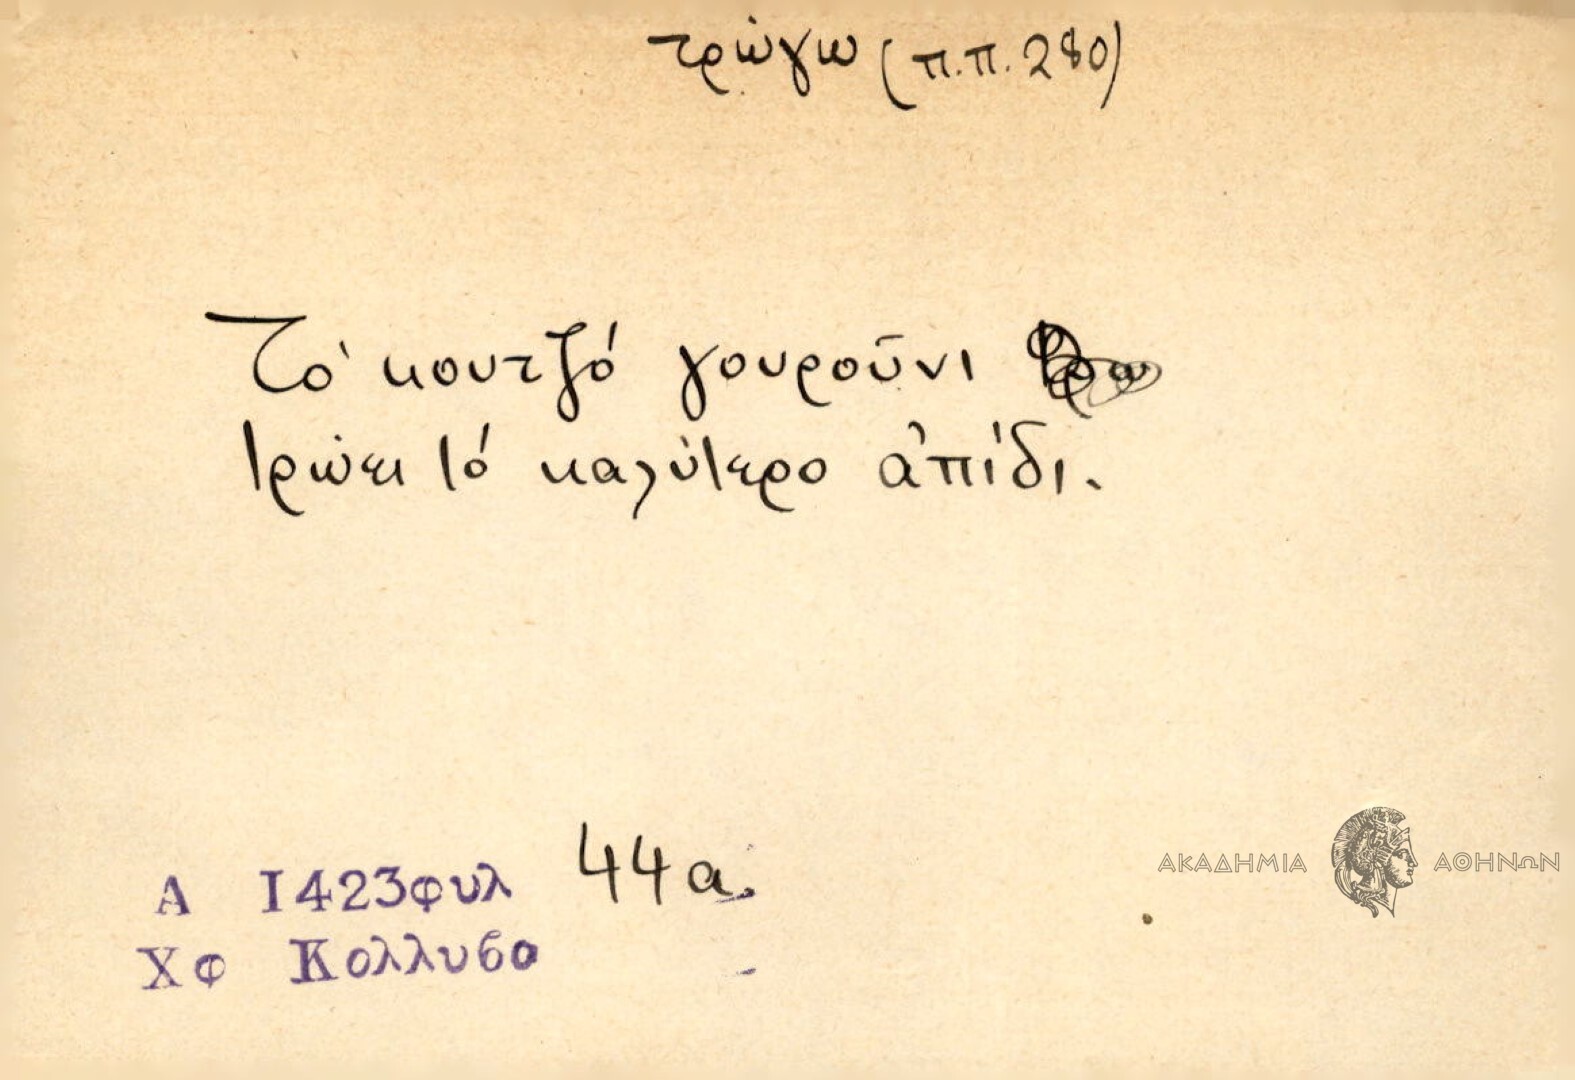 τρώγω (π.π. 280)
Τὸ κουτζό γουρούνι
τρώει τό καλύτερο ἀπίδι.
Α 1423φυλ 44α.
Χφ Κολλυβο
ΑΚΑΔΗΜΙΑ ΑΘΗΝΩΝ